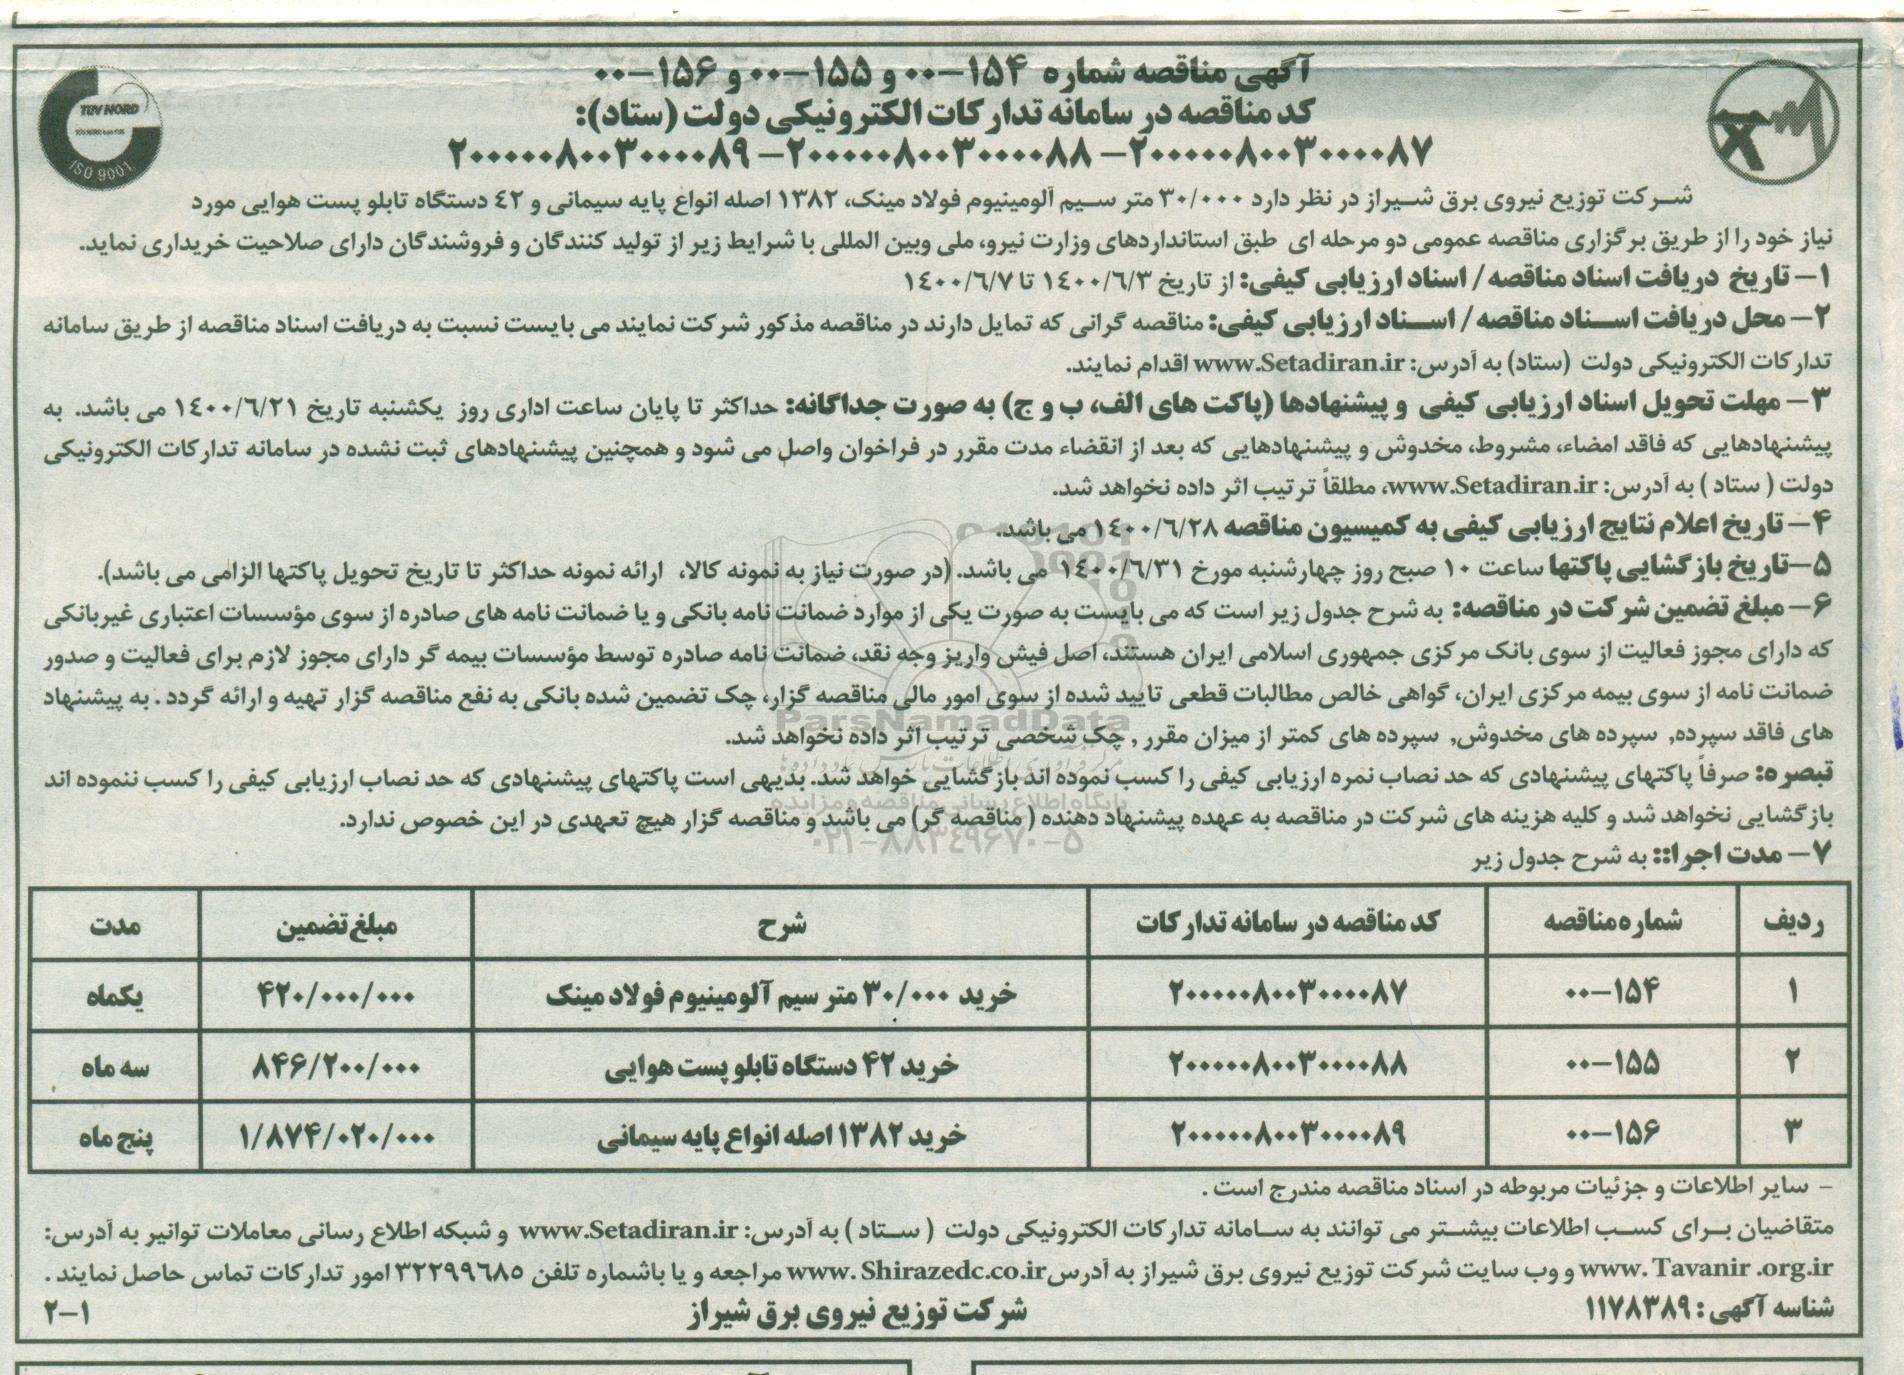 آگهی مناقصه شماره ۱۵۴-۰۰ و ۱۵۵-۰۰ و ۱۵۶-۰۰
کد مناقصه در سامانه تدارکات الکترونیکی دولت (ستاد):
۲۰۰۰۰۰۸۰۰۳۰۰۰۰۸۷ -۲۰۰۰۰۰۸۰۰۳۰۰۰۰۸۸ -۲۰۰۰۰۰۸۰۰۳۰۰۰۰۸۹
TÜV NORD
ISO 9001
شرکت توزیع نیروی برق شیراز در نظر دارد ۳۰/۰۰۰ متر سیم آلومینیوم فولاد مینک، ۱۳۸۲ اصله انواع پایه سیمانی و ٤٢ دستگاه تابلو پست هوایی مورد
نیاز خود را از طریق برگزاری مناقصه عمومی دو مرحله ای طبق استانداردهای وزارت نیرو، ملی وبین المللی با شرایط زیر از تولید کنندگان و فروشندگان دارای صلاحیت خریداری نماید.
۱- تاریخ دریافت اسناد مناقصه / اسناد ارزیابی کیفی: از تاریخ ١٤٠٠/٦/٣ تا ١٤٠٠/٦/٧
۲- محل دریافت اسناد مناقصه / اسناد ارزیابی کیفی: مناقصه گرانی که تمایل دارند در مناقصه مذکور شرکت نمایند می بایست نسبت به دریافت اسناد مناقصه از طریق سامانه
تدارکات الکترونیکی دولت (ستاد) به آدرس: www.Setadiran.ir اقدام نمایند.
۳- مهلت تحویل اسناد ارزیابی کیفی و پیشنهادها (پاکت های الف، ب و ج) به صورت جداگانه: حداکثر تا پایان ساعت اداری روز یکشنبه تاریخ ١٤٠٠/٦/٢١ می باشد. به
پیشنهادهایی که فاقد امضاء، مشروط، مخدوش و پیشنهادهایی که بعد از انقضاء مدت مقرر در فراخوان واصل می شود و همچنین پیشنهادهای ثبت نشده در سامانه تدارکات الکترونیکی
دولت ( ستاد ) به آدرس: www.Setadiran.ir، مطلقاً ترتیب اثر داده نخواهد شد.
۴- تاریخ اعلام نتایج ارزیابی کیفی به کمیسیون مناقصه ١٤٠٠/٦/٢٨ می باشد.
۵-تاریخ بازگشایی پاکتها ساعت ۱۰ صبح روز چهارشنبه مورخ ١٤٠٠/٦/٣١ می باشد. (در صورت نیاز به نمونه کالا، ارائه نمونه حداکثر تا تاریخ تحویل پاکتها الزامی می باشد).
۶- مبلغ تضمین شرکت در مناقصه: به شرح جدول زیر است که می بایست به صورت یکی از موارد ضمانت نامه بانکی و یا ضمانت نامه های صادره از سوی مؤسسات اعتباری غیربانکی
که دارای مجوز فعالیت از سوی بانک مرکزی جمهوری اسلامی ایران هستند، اصل فیش واریز وجه نقد، ضمانت نامه صادره توسط مؤسسات بیمه گر دارای مجوز لازم برای فعالیت و صدور
ضمانت نامه از سوی بیمه مرکزی ایران، گواهی خالص مطالبات قطعی تایید شده از سوی امور مالی مناقصه گزار، چک تضمین شده بانکی به نفع مناقصه گزار تهیه و ارائه گردد . به پیشنهاد
های فاقد سپرده, سپرده های مخدوش, سپرده های کمتر از میزان مقرر , چک شخصی ترتیب اثر داده نخواهد شد.
تبصره: صرفاً پاکتهای پیشنهادی که حد نصاب نمره ارزیابی کیفی را کسب نموده اند بازگشایی خواهد شد. بدیهی است پاکتهای پیشنهادی که حد نصاب ارزیابی کیفی را کسب ننموده اند
بازگشایی نخواهد شد و کلیه هزینه های شرکت در مناقصه به عهده پیشنهاد دهنده ( مناقصه گر) می باشد و مناقصه گزار هیچ تعهدی در این خصوص ندارد.
ParsNamadData
پایگاه اطلاع رسانی مناقصه و مزایده
۰۲۱-۸۸۳۴۹۶۷۰-۵
۷- مدت اجرا:: به شرح جدول زیر
ردیف شماره مناقصه کد مناقصه در سامانه تدارکات شرح مبلغ تضمین مدت
۱ ۱۵۴-۰۰ ۲۰۰۰۰۰۸۰۰۳۰۰۰۰۸۷ خرید ۳۰/۰۰۰ متر سیم آلومینیوم فولاد مینک ۴۲۰/۰۰۰/۰۰۰ یکماه
۲ ۱۵۵-۰۰ ۲۰۰۰۰۰۸۰۰۳۰۰۰۰۸۸ خرید ۴۲ دستگاه تابلو پست هوایی ۸۴۶/۲۰۰/۰۰۰ سه ماه
۳ ۱۵۶-۰۰ ۲۰۰۰۰۰۸۰۰۳۰۰۰۰۸۹ خرید ۱۳۸۲ اصله انواع پایه سیمانی ۱/۸۷۴/۰۲۰/۰۰۰ پنج ماه
- سایر اطلاعات و جزئیات مربوطه در اسناد مناقصه مندرج است .
متقاضیان برای کسب اطلاعات بیشتر می توانند به سامانه تدارکات الکترونیکی دولت ( ستاد ) به آدرس: www.Setadiran.ir و شبکه اطلاع رسانی معاملات توانیر به آدرس:
www. Tavanir .org.ir و وب سایت شرکت توزیع نیروی برق شیراز به آدرس www. Shirazedc.co.ir مراجعه و یا باشماره تلفن ٣٢٢٩٩٦٨٥ امور تدارکات تماس حاصل نمایند .
شناسه آگهی : ۱۱۷۸۳۸۹
شرکت توزیع نیروی برق شیراز
۲-۱